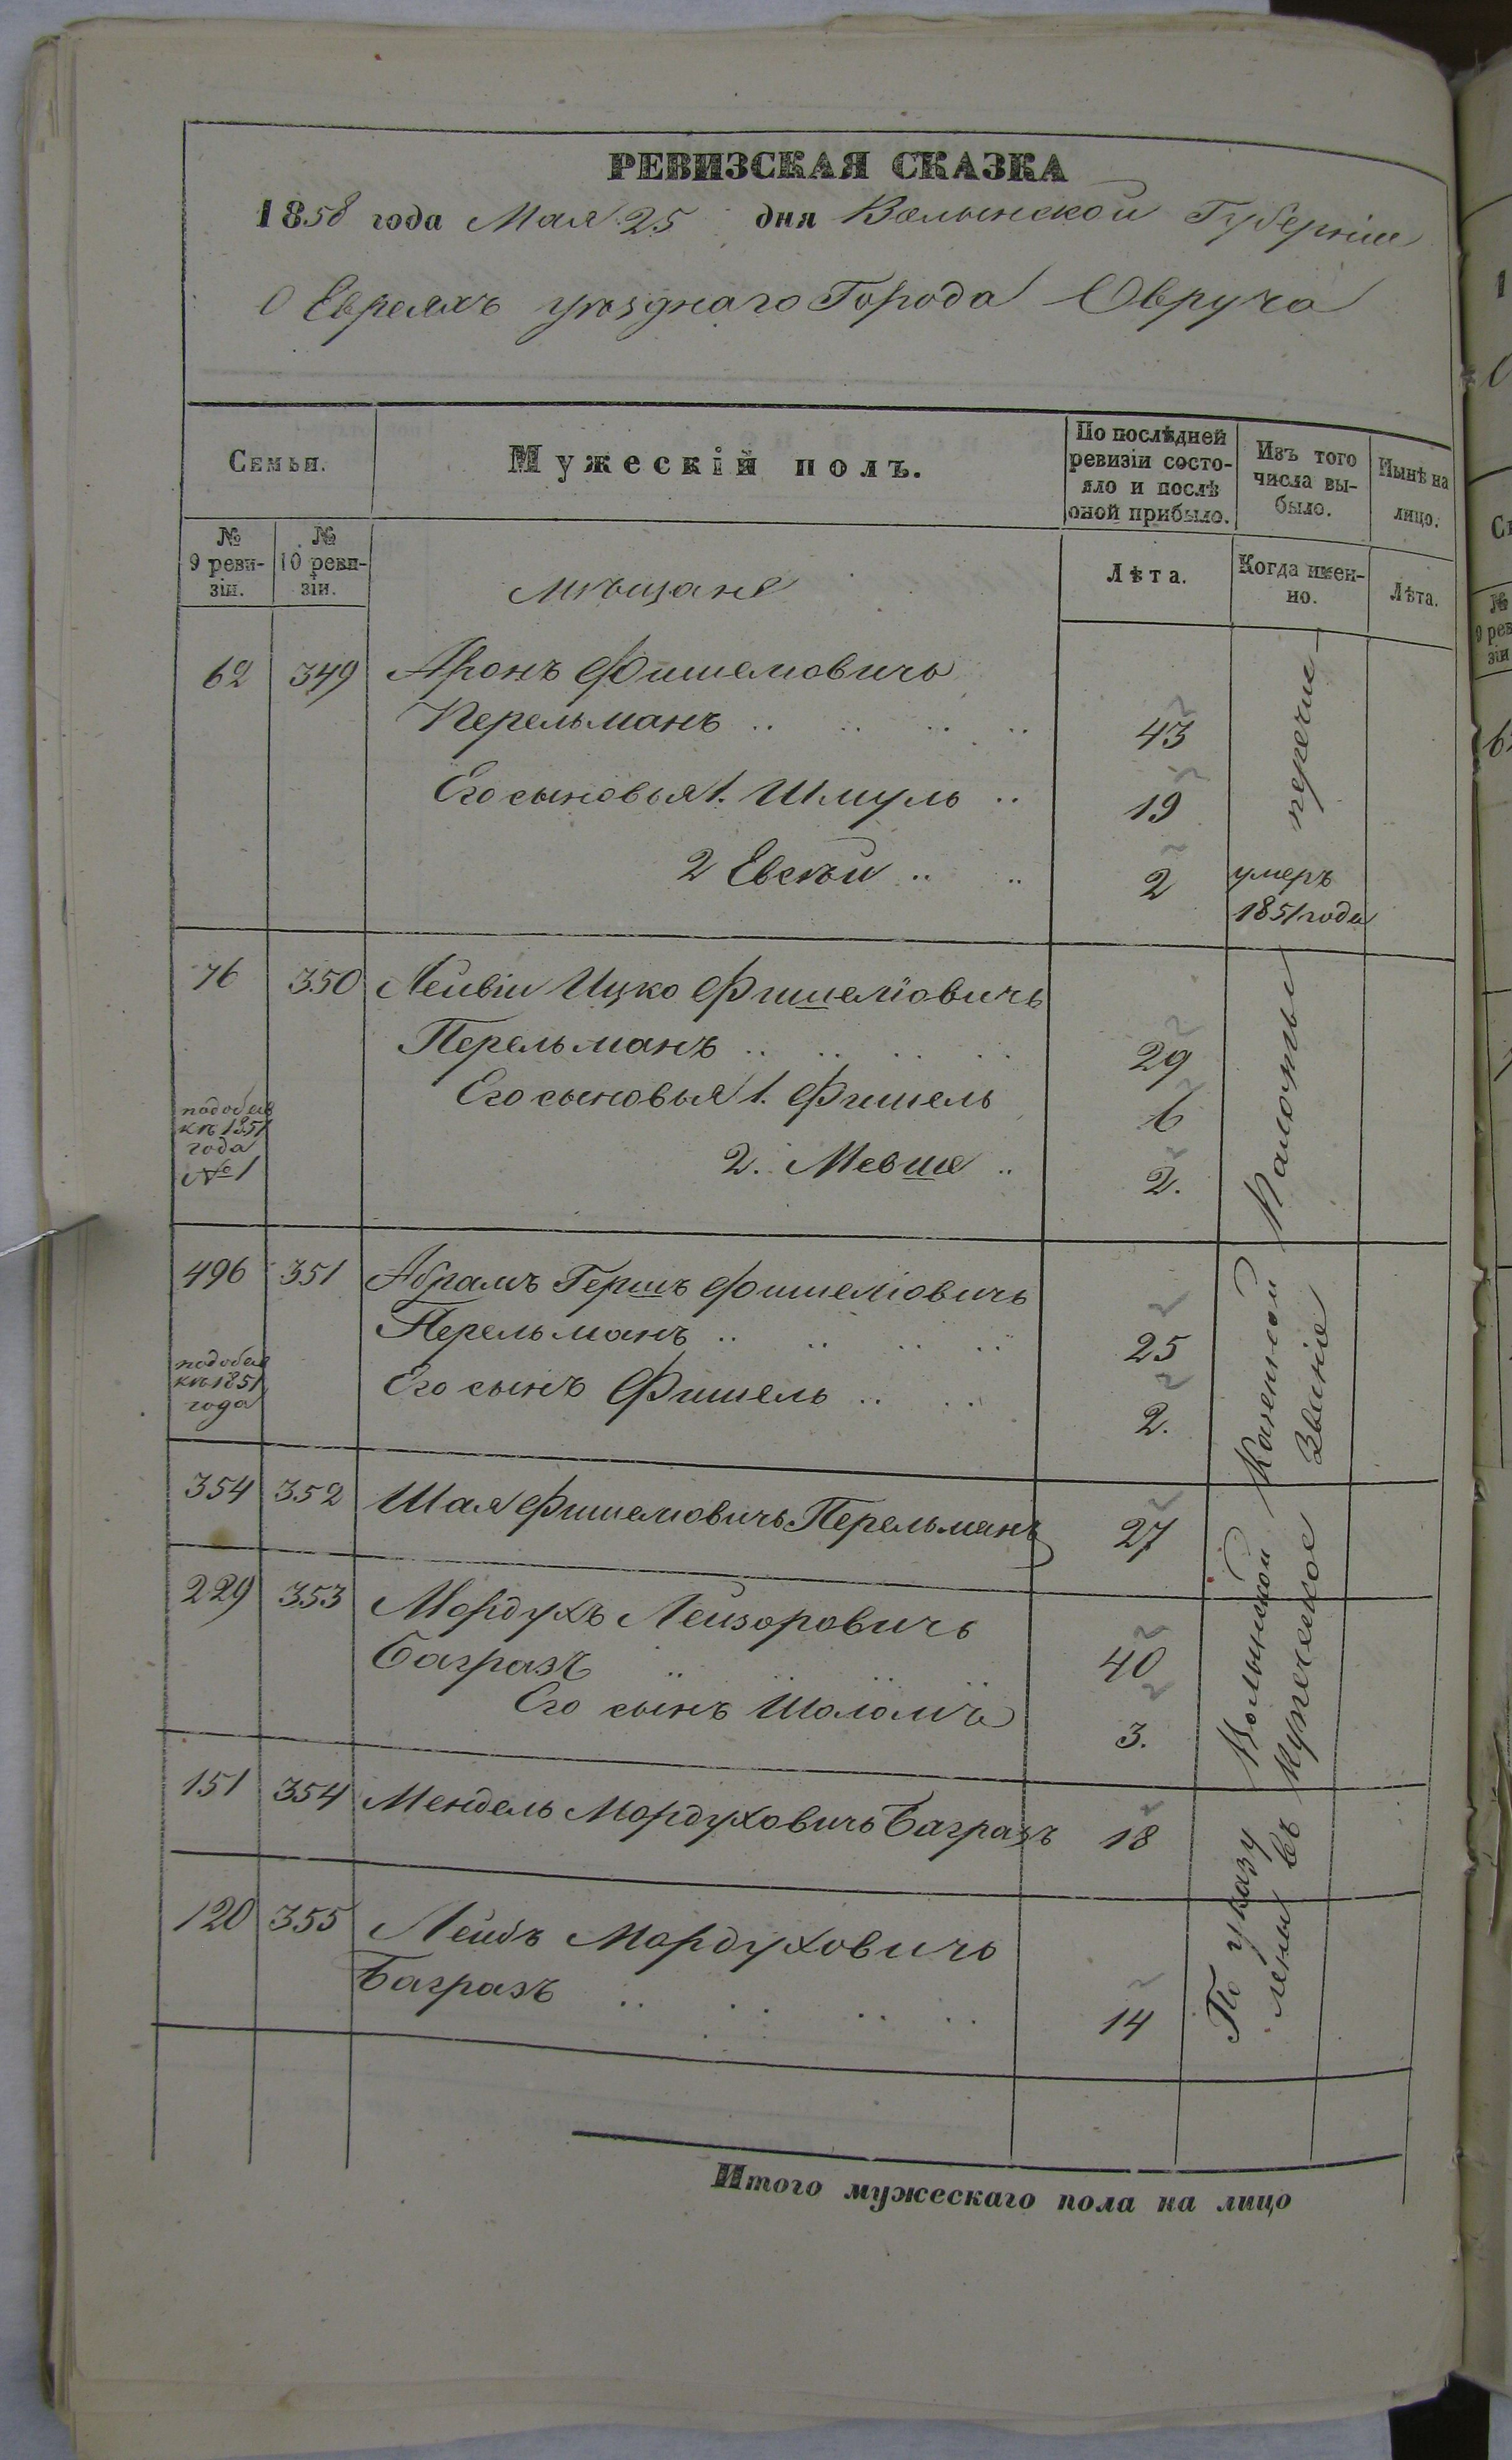 РЕВИЗСКАЯ СКАЗКА
1858 года Мая 25 дня Волынской Губернии
О Евреяхъ уѣзднаго Города Овруча
Семьи.
Мужескій полъ.
По послѣдней ревизіи состо-
яло и послѣ
оной прибыло.
Изъ того
числа вы-
было.
Нынѣ на
лицо.
№
9 реви-
зіи.
№
10 реви-
зіи.
Лѣта.
Когда имен-
но.
Лѣта.
мѣщане
62 349 Аронъ Фишелiовичъ
Перельманъ 43
Его сыновья 1. Шмуль 19
2 Евсѣй 2 умеръ
1851 года
76 350 Лейви Ицко Фишелiовичъ
Перельманъ 29
Его сыновья 1. Фишель 6
2. Мевше 2.
къ 1851
года
№ 1
496 351 Абрамъ Гершъ Фишелiовичъ
Перельманъ 25
Его сынъ Фишель 2.
къ 1851
года
354 352 Шая Фишелiовичъ Перельманъ 27
229 353 Мордухъ Лейзоровичъ
Багразъ 40
Его сынъ Шоломъ 3.
151 354 Мендель Мордуховичъ Багразъ 18
120 355 Лейбъ Мордуховичъ
Багразъ 14
По указу Волынской Казенной Палаты перечис-
лени въ Купеческое Званіе
Итого мужескаго пола на лицо